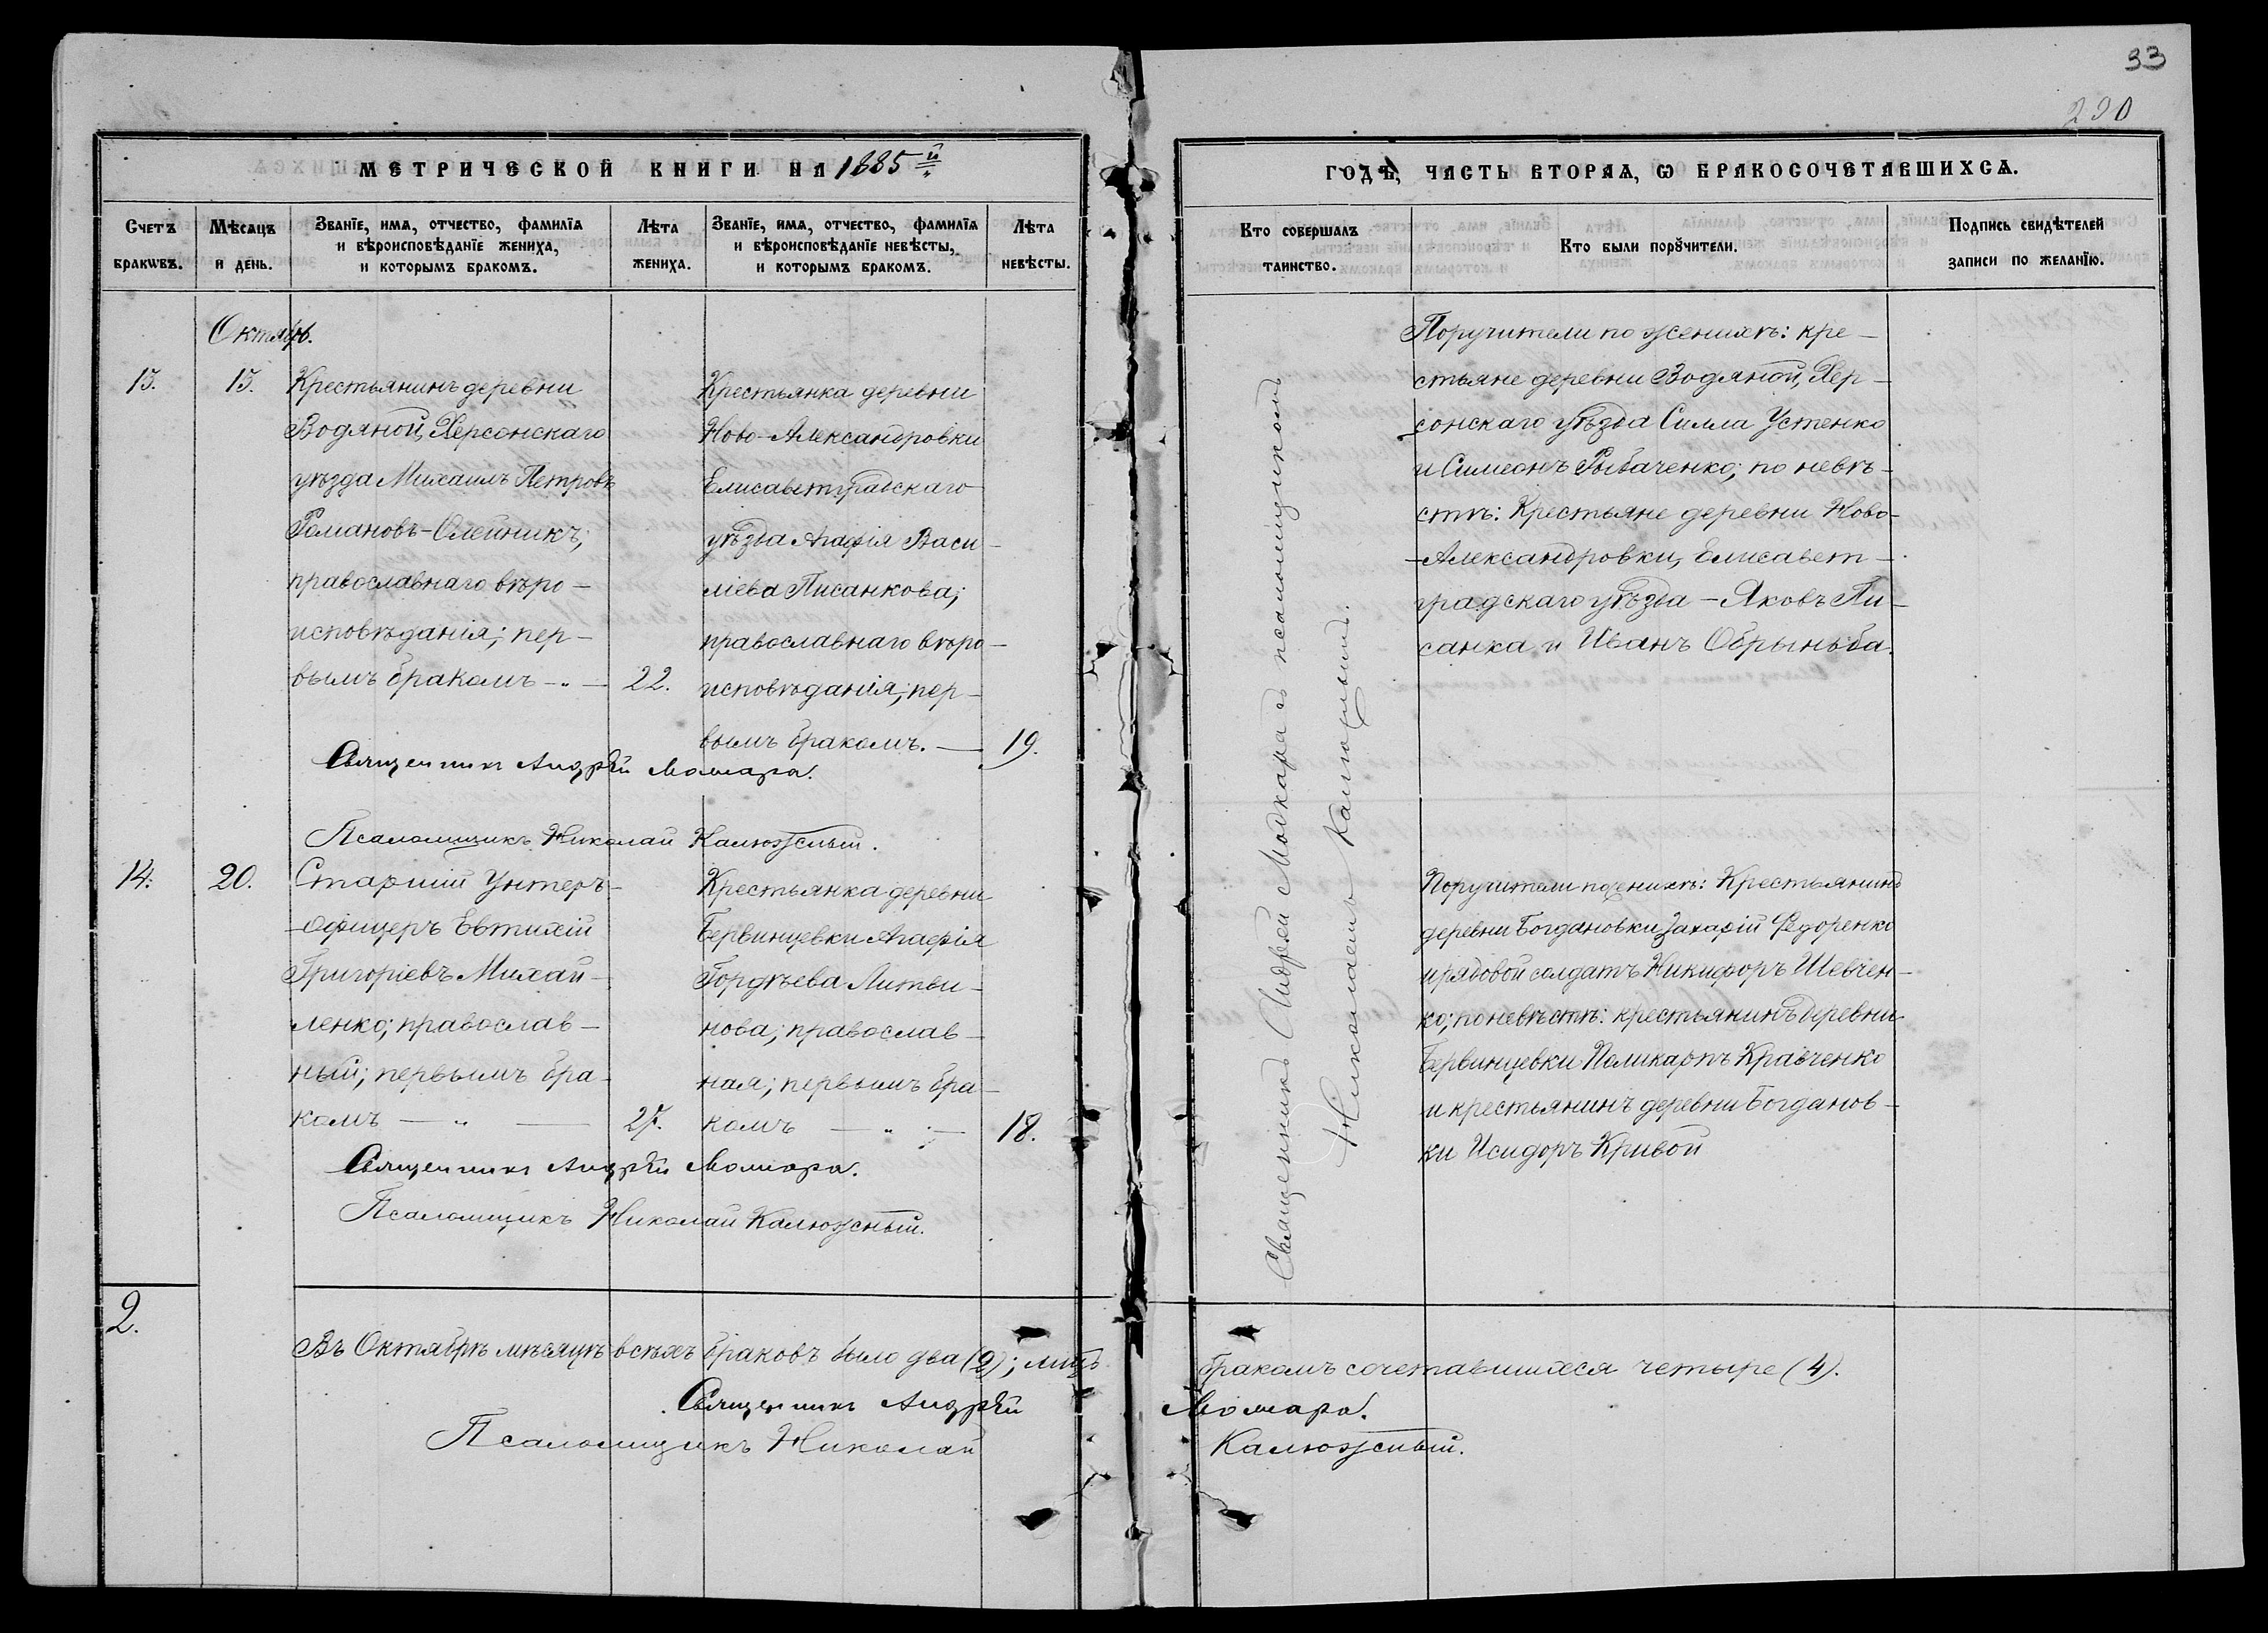 33
290
МЕТРИЧЕСКОЙ КНИГИ НА 1885й
ГОДЪ, ЧАСТЬ ВТОРАѦ, Ѡ БРАКОСОЧЕТАВШИХСѦ.
Счетъ браквъ.
Мѣсѧцъ и день.
Званїе, имѧ, отчество, фамилїѧ
и вѣроисповѣданїе жениха,
и которымъ бракомъ.
Лѣта жениха.
Званїе, имѧ, отчество, фамилїѧ
и вѣроисповѣданїе невѣсты,
и которымъ бракомъ.
Лѣта невѣсты.
Кто совершалъ таинство.
Кто были порꙋчители.
Подпись свидѣтелей
записи по желанїю.
Октябрь.
13.
13.
Крестьянинъ деревни
Водяной, Херсонскаго
уѣзда Михаилъ Петровъ
Романовъ-Олейникъ;
православнаго вѣро-
исповѣданія; пер-
вымъ бракомъ — " —
22.
Крестьянка деревни
Ново-Александровки
Елисаветградскаго
уѣзда Агафія Васи-
ліева Писанкова;
православнаго вѣро-
исповѣданія; пер-
вымъ бракомъ. —
19.
Священникъ Андрей
Псаломщикъ Николай Калюжный.
Священникъ Андрей съ псаломщикомъ
Николаемъ Калюжнымъ.
Поручители по женихѣ: кре-
стьяне деревни Водяной, Хер-
сонскаго уѣзда Силла Устенко
и Симеонъ Рыбаченко; по невѣ-
стѣ: Крестьяне деревни Ново-
-Александровки, Елисавет-
градскаго уѣзда — Яковъ Пи-
санка и Иванъ Обрыньба.
14.
20.
Старшій Унтеръ-
-офицеръ Евтихій
Григоріевъ Михай-
ленко; православ-
ный; первымъ бра-
комъ — " —
27.
Крестьянка деревни
Бервинцевки Агафія
Гордѣева Литви-
нова; православ-
ная; первымъ бра-
комъ — " —
18.
Священникъ Андрей
Псаломщикъ Николай Калюжный.
Поручители по женихѣ: Крестьянинъ
деревни Богдановки Захарій Федоренко
и рядовой солдатъ Никифоръ Шевчен-
ко; по невѣстѣ: крестьянинъ деревни
Бервинцевки Поликарпъ Кравченко
и крестьянинъ деревни Богданов-
ки Исидоръ Кривой
2.
Въ Октябрѣ мѣсяцѣ всѣхъ браковъ было два (2); лицъ бракомъ сочетавшихся четыре (4).
Священникъ Андрей
Псаломщикъ Николай Калюжный.